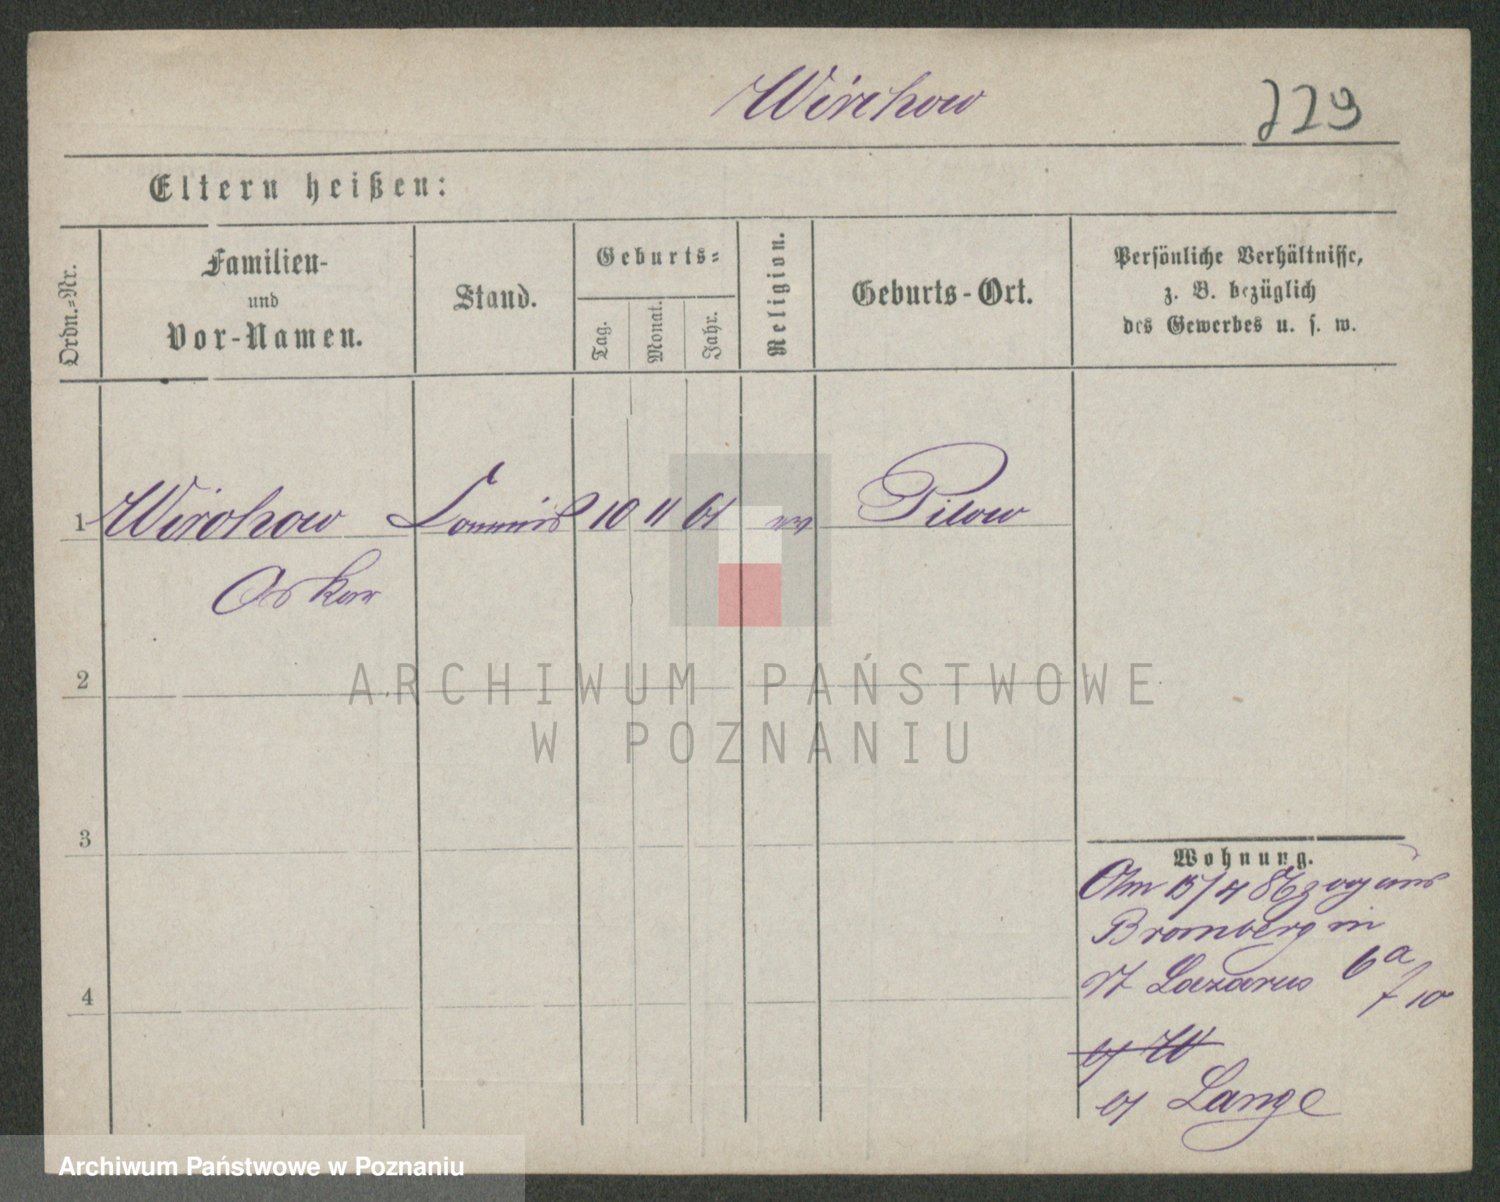 Wirchow
229
Eltern heißen:
Ordn.-Nr.
Familien-
und
Vor-Namen.
Stand.
Geburts-
Tag.
Monat.
Jahr.
Religion.
Geburts-Ort.
Persönliche Verhältnisse,
z. B. bezüglich
des Gewerbes u. s. w.
1 Wirchow Commis 10 11 61 ev Pilow
Oskar
2
3
4
Wohnung.
Am 15/4 86 zog aus
Bromberg in
St Lazarus 6a
f 10
bj W
bj Lange
ARCHIWUM PAŃSTWOWE
W POZNANIU
Archiwum Państwowe w Poznaniu